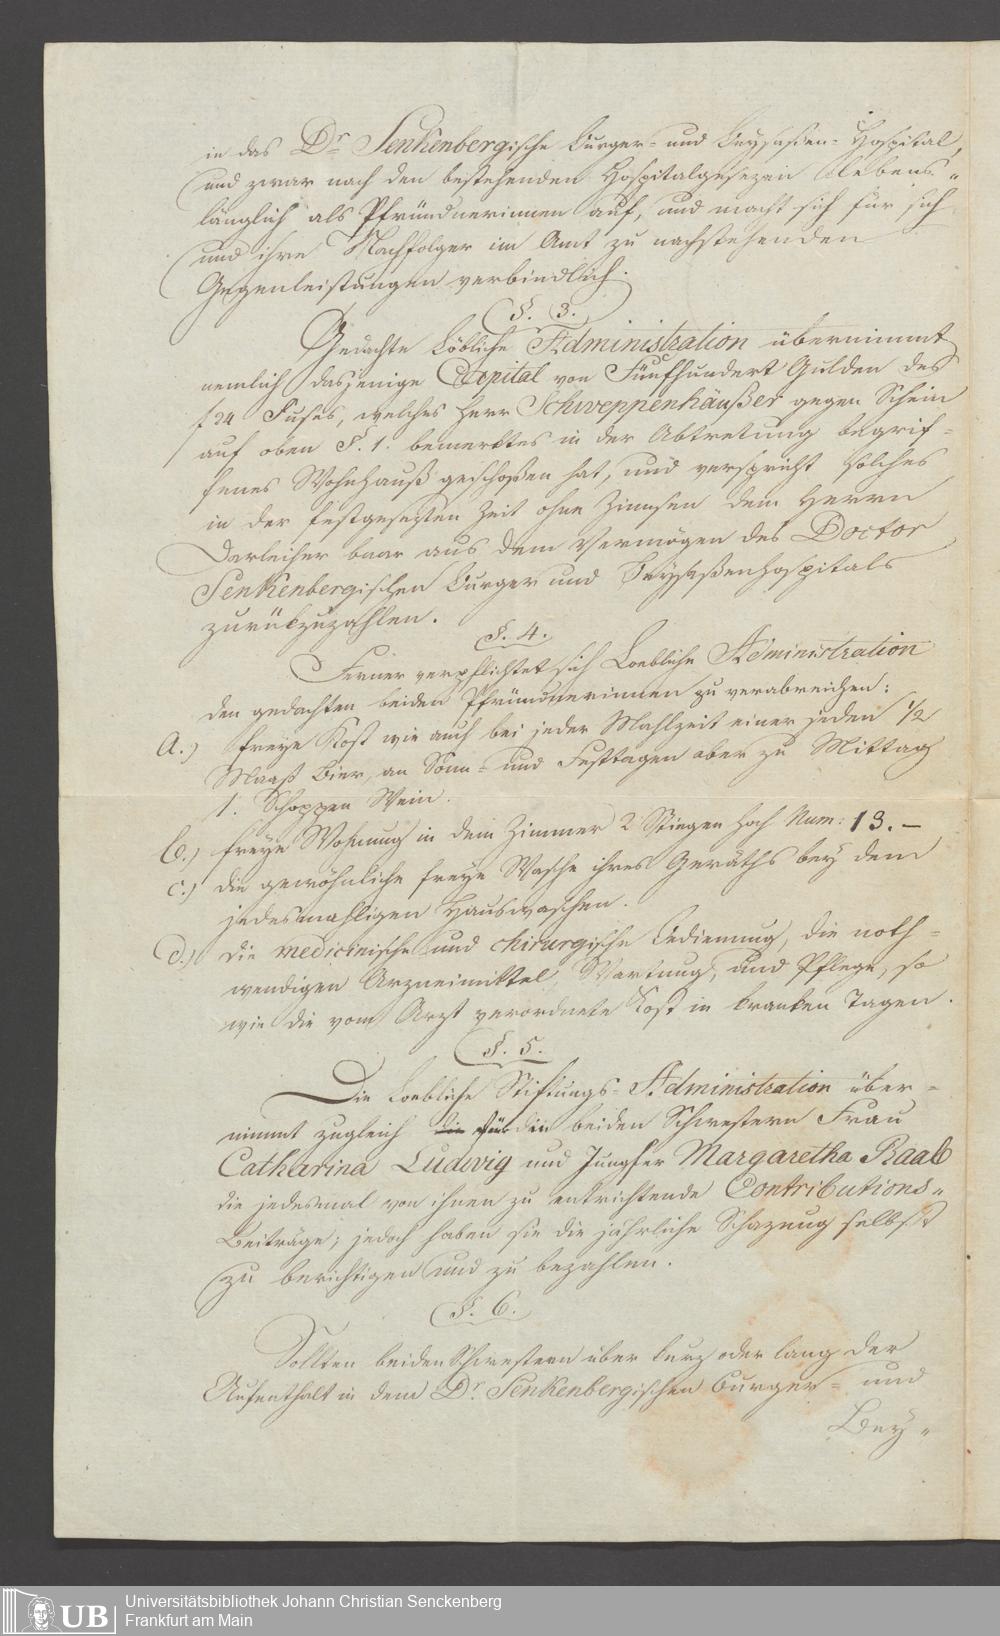 in das Dr. Senkenbergische Burger- und Beysaßen-Hospital,
und zwar nach den bestehenden Hospitalgesezen lebens-
länglich als Pfründnerinnen auf, und macht sich für sich
und ihre Nachfolger im Amt zu nachstehenden
Gegenleistungen verbindlich.
§. 3.
Gedachte Löbliche Administration übernimmt
nemlich dasjenige Capital von Fünfhundert Gulden des
f 24 Fuses, welches Herr Schweppenhäußer gegen Schein
auf oben §. 1. bemerktes in der Abtretung begrif-
fenes Wohnhauß geschoßen hat, und verspricht solches
in der festgesezten Zeit ohne Zinnsen dem Herrn
Darleiher baar aus dem Vermögen des Doctor
Senkenbergischen Burger und Beysaßenhospitals
zurükzuzahlen.
§. 4.
Ferner verpflichtet sich Loebliche Administration
den gedachten beiden Pfründnerinnen zu verabreichen:
a.) freye Kost wie auch bei jeder Mahlzeit einer jeden 1/2
Maaß Bier, an Sonn- und Festtagen aber zu Mittag
1. Schoppen Wein.
b.) freye Wohnung in dem Zimmer 2 Stiegen hoch Num: 13. –
c.) die gewöhnliche freye Wasche ihres Geräths bey dem
jedesmahligen Hauswaschen.
d.) die medicinische und chirurgische Bedienung, die noth-
wendigen Arzneimittel, Wartung, und Pflege, so
wie die vom Arzt verordnete Kost in kranken Tagen.
§. 5.
Die Loebliche Stiftungs-Administration über-
nimmt zugleich die für die beiden Schwestern Frau
Catharina Ludwig und Jungfer Margaretha Raab
die jedesmal von ihnen zu entrichtende Contributions-
Beiträge; jedoch haben sie die jährliche Schazung selbst
zu berichtigen und zu bezahlen.
§. 6.
Sollten beiden Schwestern über kurz oder lang der
Aufenthalt in dem Dr. Senkenbergischen Burger- und
Bey-
Universitätsbibliothek Johann Christian Senckenberg
Frankfurt am Main
UB